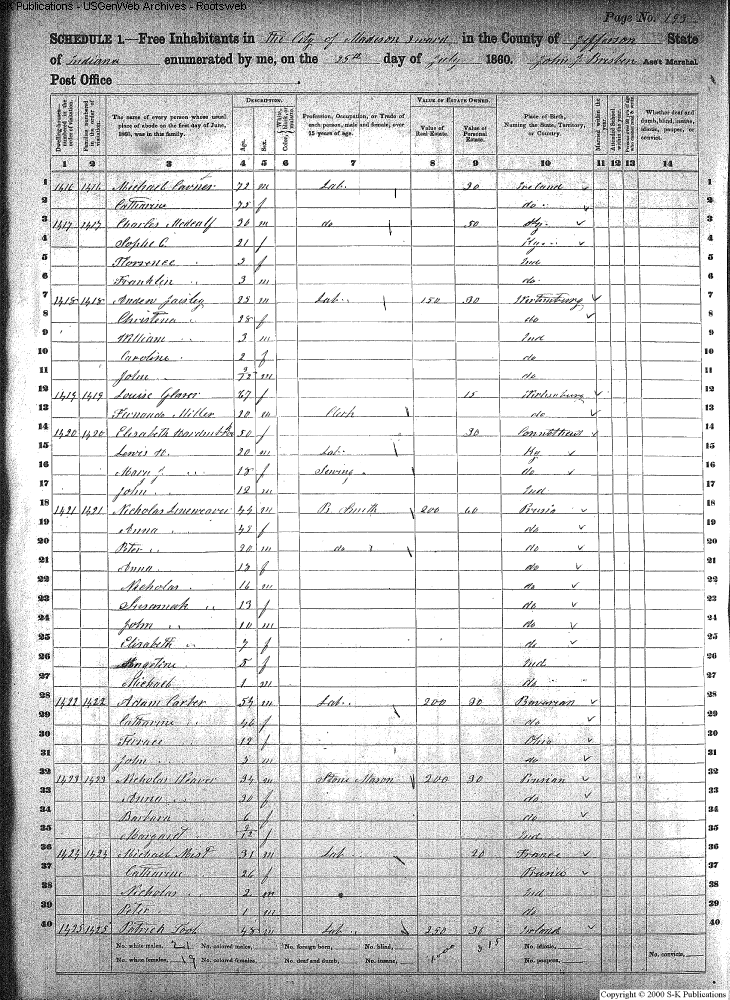 S-K Publications - USGenWeb Archives - Rootsweb
Page No. 193
SCHEDULE 1.—Free Inhabitants in The City of Madison ward in the County of Jefferson State
of Indiana enumerated by me, on the 25th day of July 1860. John J Ass't Marshal
Post Office
Dwelling-houses numbered in the order of visitation. Families numbered in the order of visitation. The name of every person whose usual place of abode on the first day of June, 1860, was in this family. DESCRIPTION. Age. Sex. Color, White, black, or mulatto. Profession, Occupation, or Trade of each person, male and female, over 15 years of age. VALUE OF ESTATE OWNED. Value of Real Estate. Value of Personal Estate. Place of Birth, Naming the State, Territory, or Country. Married within the year. Attended School within the year. Whether deaf and dumb, blind, insane, idiotic, pauper, or convict.
1 2 3 4 5 6 7 8 9 10 11 12 13 14
1 1416 1416 Michael 72 m Lab. 30 Ireland 1
2 Catharine 75 f do 2
3 1417 1417 Charles Medcalf 26 m do 50 Ky. 3
4 Sophe C 21 f Ky. 4
5 Florrence 2 f Ind 5
6 Franklin 3 m do 6
7 1418 1418 25 m Lab. 150 30 7
8 Christena 28 f do 8
9 William 3 m Ind 9
10 Caroline 2 f do 10
11 John m do 11
12 1419 1419 Louise Glaser 67 f 15 12
13 Miller 20 m Clerk do 13
14 1420 1420 Elisabeth 50 f 30 14
15 Lewis 20 m Lab. Ky 15
16 Mary J 18 f Sewing do 16
17 John 12 m Ind 17
18 1421 1421 Nicholas Lineweaver 44 m B. Smith 200 60 Prusia 18
19 Anna 48 f do 19
20 Peter 20 m do do 20
21 Anna 18 f do 21
22 Nicholas 16 m do 22
23 Susannah 13 f do 23
24 John 10 m do 24
25 Elizabeth 7 f do 25
26 Angeline 5 f Ind 26
27 Michael 1 m do 27
28 1422 1422 Adam Carter 54 m Lab. 200 30 Bavarian 28
29 Catharine 46 f do 29
30 19 f Ohio 30
31 John 5 m do 31
32 1423 1423 Nicholas Weaver 34 m Stone Mason 200 30 Prusian 32
33 Anna 30 f do 33
34 Barbara 6 f do 34
35 Margaret f Ind 35
36 1424 1424 Michael Mist 31 m Lab 20 France 36
37 Catharine 26 f Prusia 37
38 Nicholas 2 m Ind 38
39 Peter 1 m do 39
40 1425 1425 Patrick Tool 48 m Lab. 250 36 Ireland 40
No. white males, 21 No. colored males, No. foreign born, No. blind, 315 No. idiotic,
No. white females, 19 No. colored females, No. deaf and dumb, No. insane, No. paupers, No. convicts,
Copyright © 2000 S-K Publications